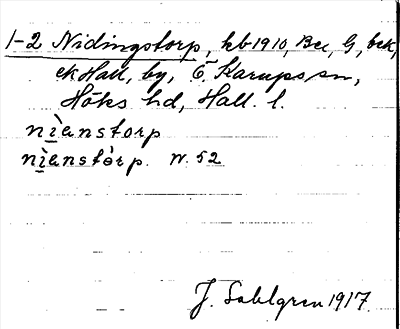 1-2 Nidingstorp, kb 1910, Bec, G, bek,
ek Hall, by, Ö. Karups sn,
Höks hd, Hall. l.
nìenstorp
nìenstòrp. N. 52
J. Sahlgren 1917.